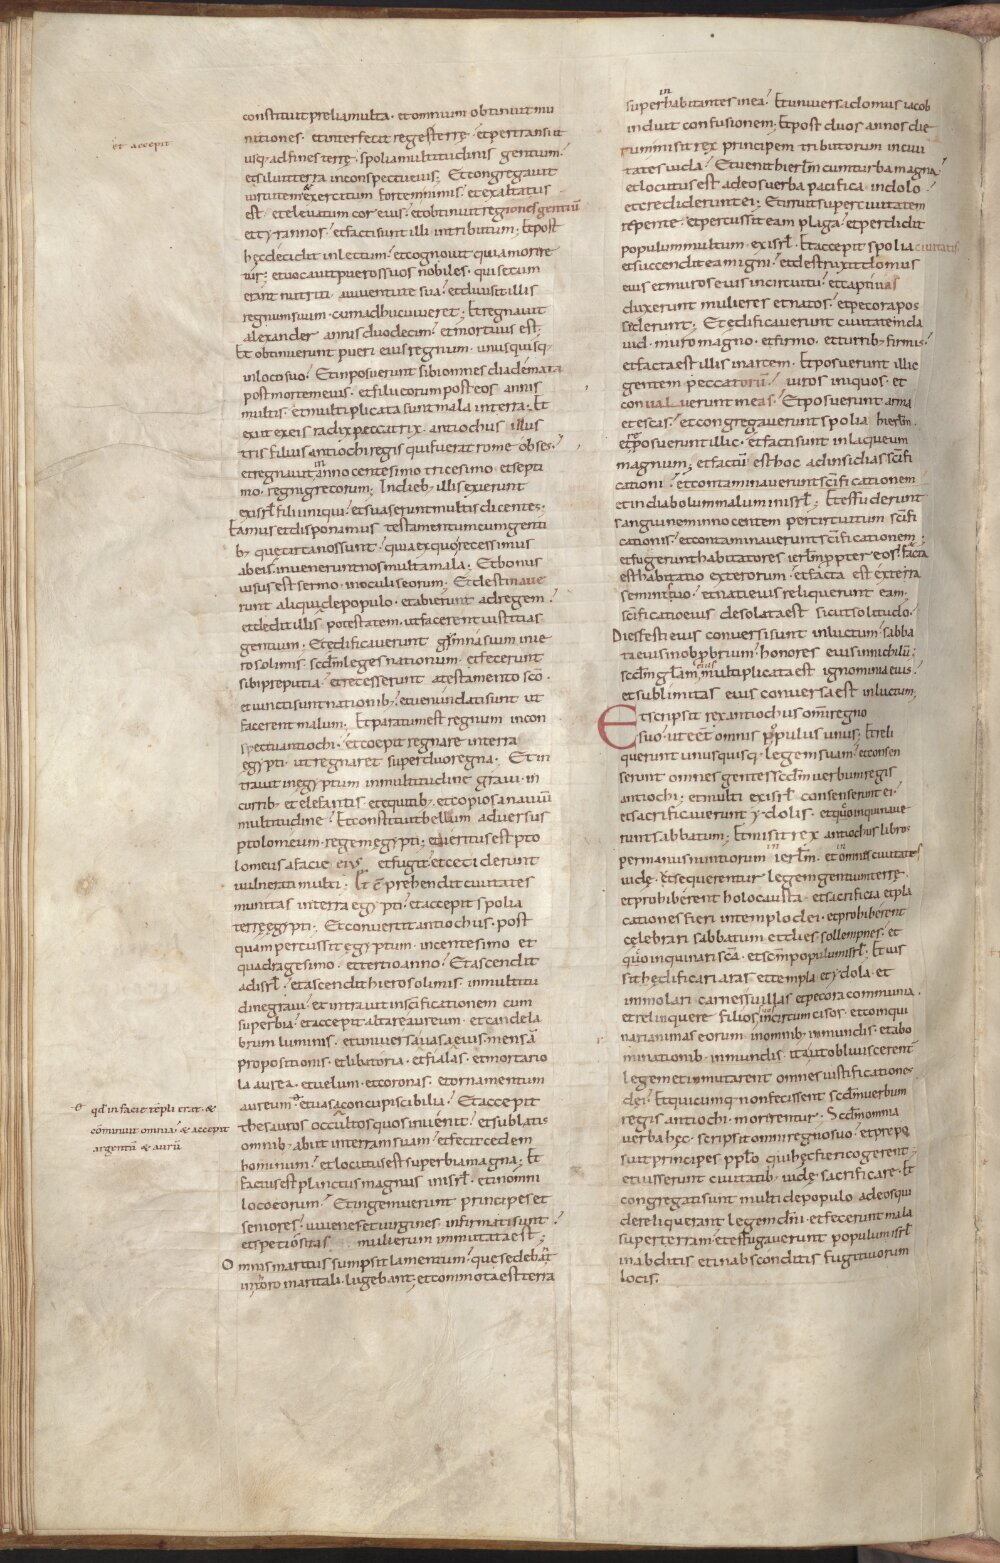 constituit prelia multa · et omnium obtinuit mu
nitiones · et interfecit reges terrę · et pertransiit
usq; ad fines terrę · spolia multitudinis gentium ·
et siluit terra in conspectu eius; Et congregauit
uirtutem & exercitum fortem nimis · et exaltatus
est · et eleuatum cor eius · et obtinuit regiones gentiū
et tyrannos · et facti sunt illi in tributum; Et post
hęc decidit in lectum · et cognouit quia morire
tur; et uocauit pueros suos nobiles · qui secum
erant nutriti · a iuuentute sua · et diuisit illis
regnum suum · cum adhuc uiueret; Et regnauit
alexander annis duodecim · et mortuus est
Et obtinuerunt pueri eius regnum · unusquisq;
in loco suo · Et inposuerunt sibi omnes diademata
post mortem eius · et filii eorum post eos annis
multis · et multiplicata sunt mala in terra; Et
exiit ex eis radix peccatrix · antiochus illus
tris filius antiochi regis qui fuerat rome obses ·
et regnauit in anno centesimo tricesimo et septi
mo · regni grecorum; In dieb; illis exierunt
ex isrł filii iniqui · et suaserunt multis dicentes;
Eamus et disponamus testamentum cum genti
b; que circa nos sunt · quia ex quo recessimus
ab eis · inuenerunt nos multa mala; Et bonus
uisus est sermo in oculis eorum · Et destinaue
runt aliqui de populo · et abierunt ad regem ·
et dedit illis potestatem · ut facerent iustitias
gentium · Et edificauerunt gymnasium in ie
rosolimis scdm leges nationum · et fecerunt
sibi preputia · et recesserunt a testamento sco ·
et iuncti sunt nationib; · et uenundati sunt ut
facerent malum · Et paratum est regnum in con
spectu antiochi · et coepit regnare in terra
ęgypti · ut regnaret super duo regna · Et in
trauit in ęgyptum in multitudine graui · in
currib; et elefantis et equitib; et copiosa nauiū
multitudine · Et constituit bellum aduersus
ptolomeum · regem ęgypti; et ueritus est pto
lomeus a facie eius et fugit · et ceciderunt
uulnerati multi · Et cōprehendit ciuitates
munitas in terra egypti · et accepit spolia
terrę ęgypti · Et conuertit antiochus · post
quam percussit ęgyptum · in centesimo et
quadragesimo · et tertio anno · Et ascendit
ad isrł · et ascendit hierosolimis · in multitu
dine graui · et intrauit in scificationem cum
superbia · et accepit altare aureum · et candela
brum luminis · et uniuersa uasa eius · mensā
propositionis · et libatoria · et fialas · et mortario
la aurea · et uelum · et coronas · et ornamentum
aureum · et uasa concupiscibilia · Et accepit
thesauros occultos quos inuenit · et sublatis
omnib; abiit in terram suam · et fecit cedem
hominum · et locutus est superbia magna; Et
factus est planctus magnus in isrł · et in omni
loco eorum · Et ingemuerunt principes et
seniores · iuuenes et uirgines infirmati sunt ·
et spetiositas mulierum immutata est;
Omnis maritus sumpsit lamentum · que sedebat
in toro maritali · lugebant; et commota est terra
et accepit
qđ in facie tēpli erat · &
cōminuit omnia · & accepit
argentū & aurū
super habitantes in ea · Et uniuersa domus iacob
induit confusionem; Et post duos annos die
rum misit rex principem tributorum in ciui
tates iuda · Et uenit hierłm cum turba magna ·
et locutus est ad eos uerba pacifica in dolo ·
et crediderunt ei; Et irruit super ciuitatem
repente · et percussit eam plaga · et perdidit
populum multum ex isrł · Et accepit spolia ciuitatis
et succendit eam igni · et destruxit domus
eius et muros eius in circuitu · et captiuas
duxerunt mulieres et natos · et pecora pos
sederunt; Et edificauerunt ciuitatem da
uid · muro magno · et firmo · et turrib; firmis ·
et facta est illis in arcem · Et posuerunt illic
gentem peccatorū · uiros iniquos · et
conualuerunt in eas · Et posuerunt arma
et escas · et congregauerunt spolia hierłm ·
et posuerunt illic · et facti sunt in laqueum
magnum; et factū est hoc ad insidias scifi
cationi · et contaminauerunt scificationem
et in diabolum malum in isrł; Et effuderunt
sanguinem innocentem per circuitum scifi
cationis · et contaminauerunt scificationem;
et fugerunt habitatores ierłm ppter eos · & facta
est habitatio exterorum · et facta est extera
semini suo · et nati eius reliquerunt eam ·
scificatio eius desolata est sicut solitudo ·
Dies festi eius conuersi sunt in luctum · sabba
ta eius in obprobrium · honores eius in nichilū;
scdm głam eius multiplicata est ignominia eius ·
et sublimitas eius conuersa est in luctum;
Et scripsit rex antiochus omni regno
suo · ut eēt omnis populus unus; Et reli
querunt unusquisq; legem suam · et consen
serunt omnes gentes scdm uerbum regis
antiochi; et multi ex isrł consenserunt ei ·
et sacrificauerunt ydolis · et quoinquinaue
runt sabbatum; Et misit rex antiochus libros
per manus nuntiorum in ierłm · et in omnis ciuitates
iudę · et sequerentur legem gentium terrę ·
et prohiberent holocausta · et sacrificia et pla
cationes fieri in templo dei · et prohiberent
celebrari sabbatum et dies sollempnes · et
quoinquinari sca · et scm populum isrł; Et ius
sit hędificari aras et templa et ydola · et
immolari carnes suillas et pecora communia ·
et relinquere filios suos incircumcisos · et coinqui
nari animas eorum in omnib; inmundis · et abo
minationib; inmundis · ita ut obliuiscerent̄
legem et inmutarent omnes iustificationes
dei · Et quicumq; non fecissent scdm uerbum
regis antiochi · morerentur; Scdm omnia
uerba hęc · scripsit omni regno suo · et prepo
suit principes pplo qui hęc fieri cogerent ·
et iusserunt ciuitatib; iudę sacrificare · Et
congregati sunt multi de populo ad eos qui
dereliquerant legem dn̄i · et fecerunt mala
super terram; et effugauerunt populum isrł
in abditis et in absconditis fugitiuorum
locis;